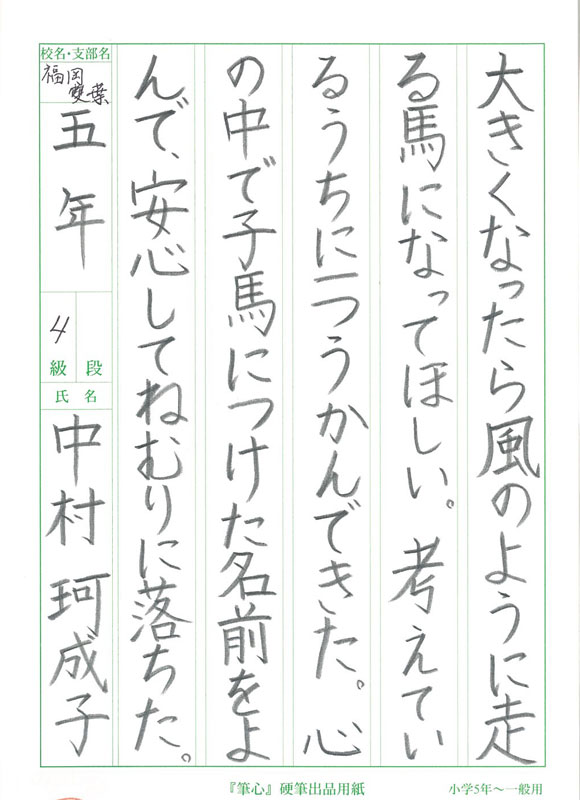 大きくなったら風のように走
る馬になってほしい。考えてい
るうちに一つうかんできた。心
の中で子馬につけた名前をよ
んで、安心してねむりに落ちた。
校名・支部名
福岡雙葉
五年
4
級 段
氏 名
中村 珂成子
『筆心』硬筆出品用紙
小学5年〜一般用